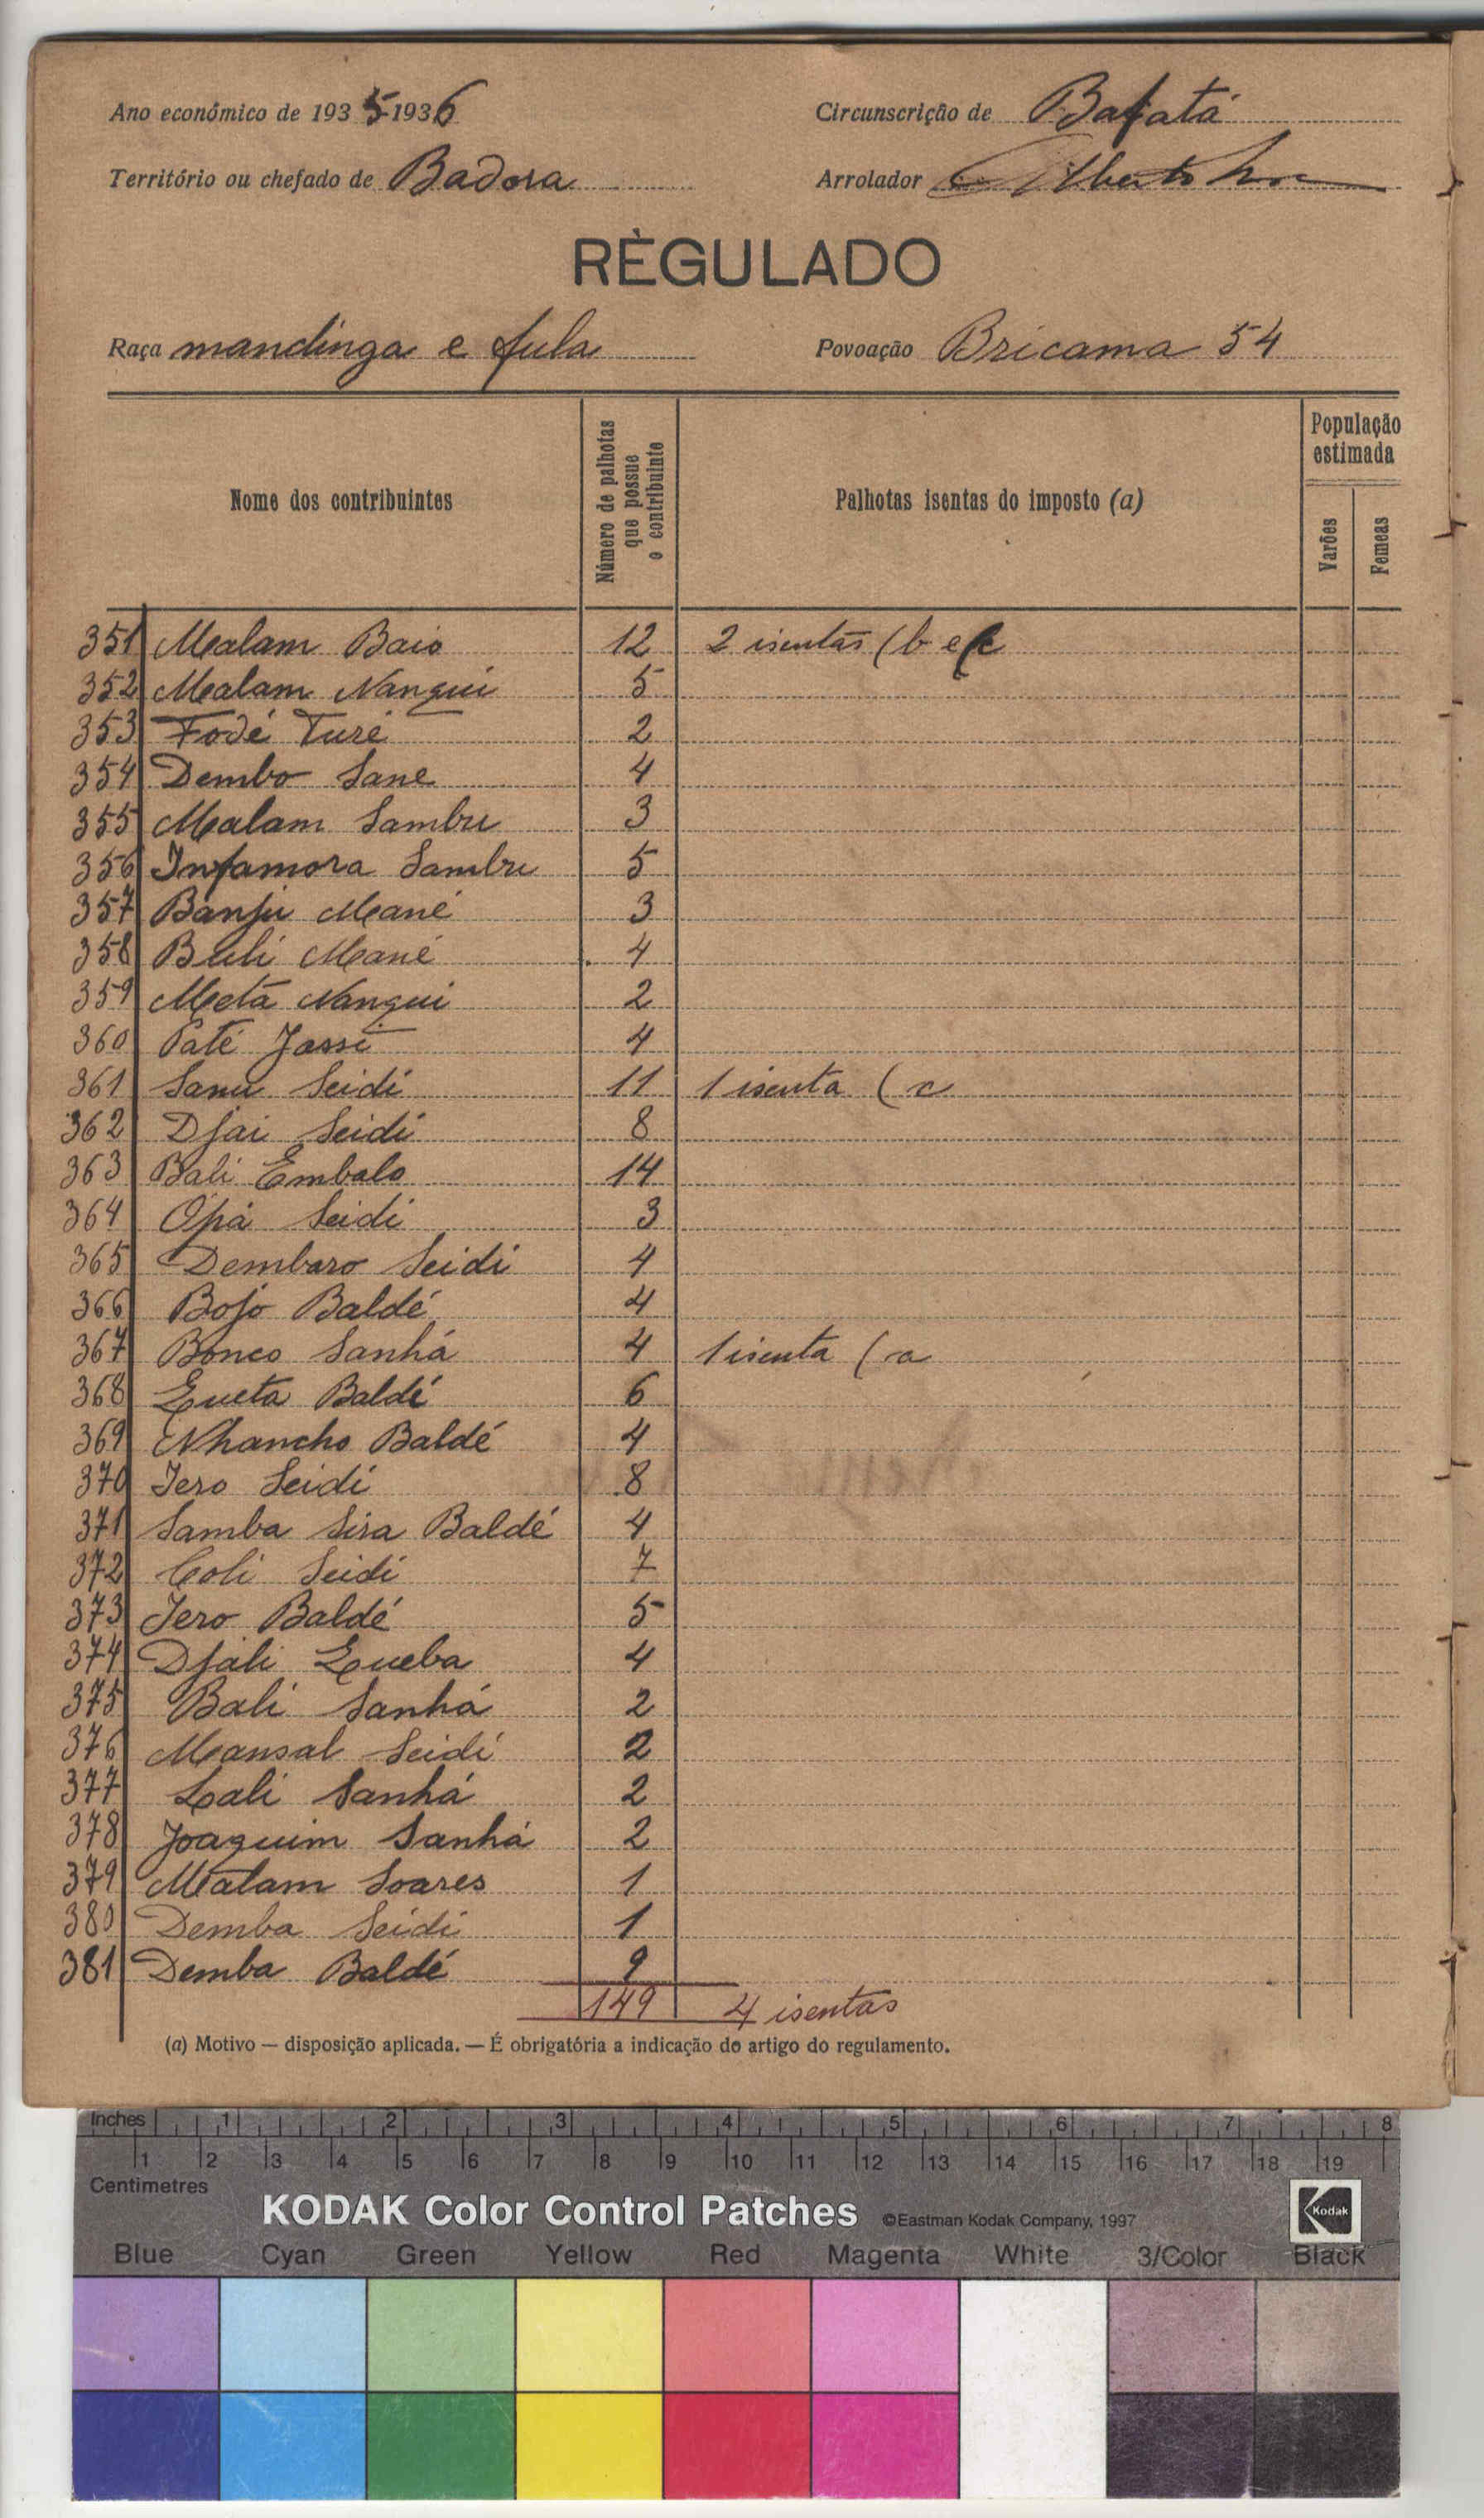 Ano económico de 1935-1936 Circunscrição de Bafatá
Território ou chefado de Badora Arrolador Alberto
RÈGULADO
Raça mandinga e fula Povoação Bricama 54
Nome dos contribuintes Número de palhotas que possue o contribuinte Palhotas isentas do imposto (a) População estimada
Varões Femeas
351 Malam Baio 12 2 isentas (b e c
352 Malam Nangui 5
353 Fodé Turé 2
354 Dembo Sane 4
355 Malam Sambu 3
356 Infamora Sambu 5
357 Banju Mané 3
358 Buli Mané 4
359 Metá Nangui 2
360 Paté Jassi 4
361 Sanu Seidi 11 1 isenta (c
362 Djai Seidi 8
363 Bali Embalo 14
364 Opá Seidi 3
365 Dembaro Seidi 4
366 Bojo Baldé 4
367 Bonco Sanhá 4 1 isenta (a
368 Queta Baldé 6
369 Nhancho Baldé 4
370 Iero Seidi 8
371 Samba Sira Baldé 4
372 Coli Seidi 7
373 Iero Baldé 5
374 Djali Queba 4
375 Bali Sanhá 2
376 Mansal Seidi 2
377 Lali Sanhá 2
378 Joaquim Sanhá 2
379 Malam Soares 1
380 Demba Seidi 1
381 Demba Baldé 9
149 4 isentas
(a) Motivo — disposição aplicada. — É obrigatória a indicação do artigo do regulamento.
Inches 1 2 3 4 5 6 7 8
1 2 3 4 5 6 7 8 9 10 11 12 13 14 15 16 17 18 19
Centimetres
KODAK Color Control Patches ©Eastman Kodak Company, 1997 Kodak
Blue Cyan Green Yellow Red Magenta White 3/Color Black